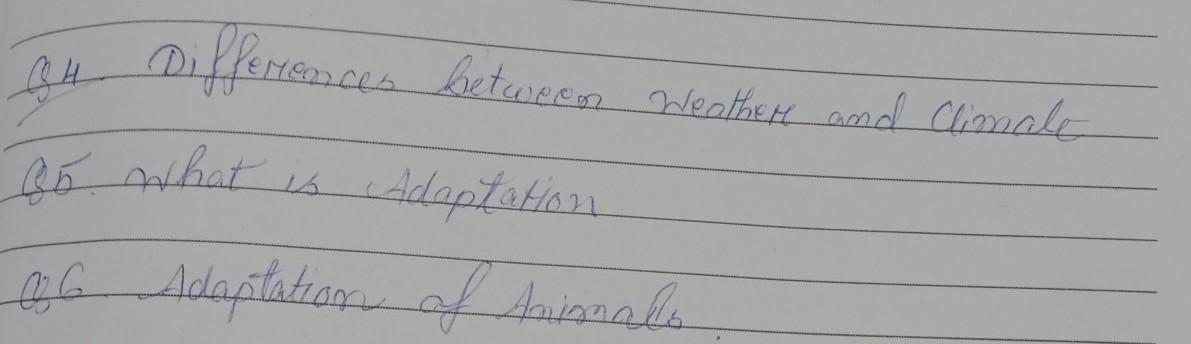 Q4. Differences between Weather and Climate
Q5. What is Adaptation
Q6. Adaptation of Animals.